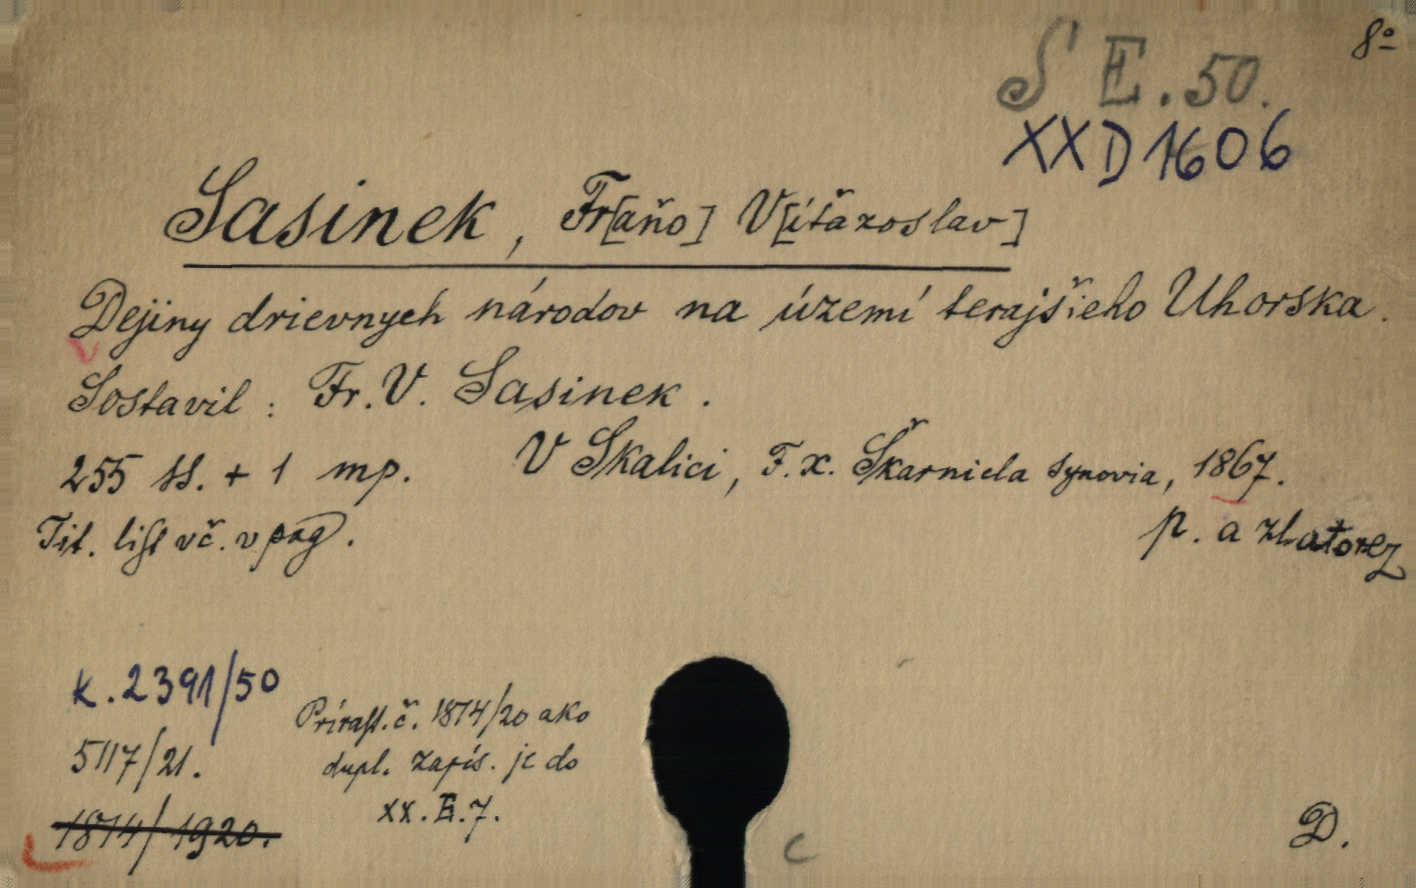 8°
S E. 50.
XX D 1606
Sasinek, Fr[aňo] V[íťazoslav]
Dejiny drievnych národov na území terajšieho Uhorska.
Sostavil: Fr. V. Sasinek.
255 ss. + 1 mp. V Skalici, F. X. Škarnicla synovia, 1867.
Tit. list vč. v pag.
p. a zlatorez
k. 2391/50
Prírast. č. 1874/20 ako
5117/21.
dupl. zapís. je do
XX. E. 7.
1874/1920.
C
D.